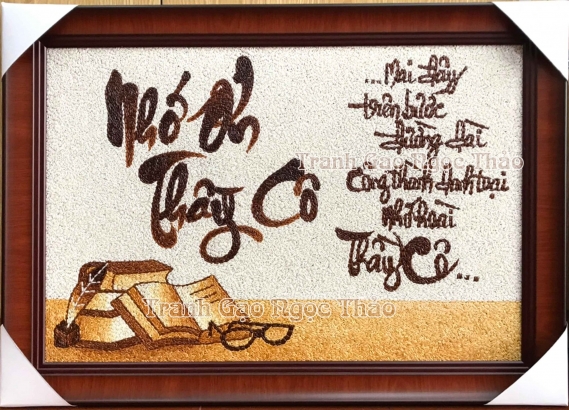 Nhớ Ơn
Thầy Cô
... Mai đây
trên bước
đường dài
Công thành danh toại
nhớ hoài
Thầy Cô...
Tranh Gạo Ngọc Thảo
Tranh Gạo Ngọc Thảo